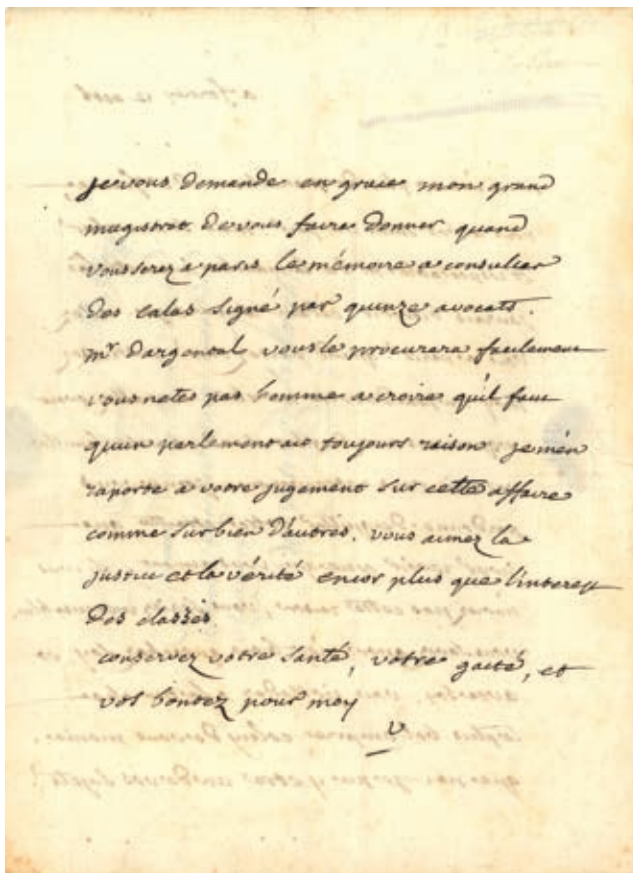 je vous demande en grace mon grand
magistrat de vous faire donner quand
vous serez a paris le mémoire a consulter
des calas signé par quinze avocats.
mr dargental vous le procurera facilement
vous netes pas homme a croire quil faut
quun parlement ait toujours raison. je m'en
raporte a votre jugement sur cette affaire
comme sur bien d'autres. vous aimez la
justice et la vérité encor plus que l'interest
des classes
conservez votre santé, votre gaité, et
vos bontez pour moy
V